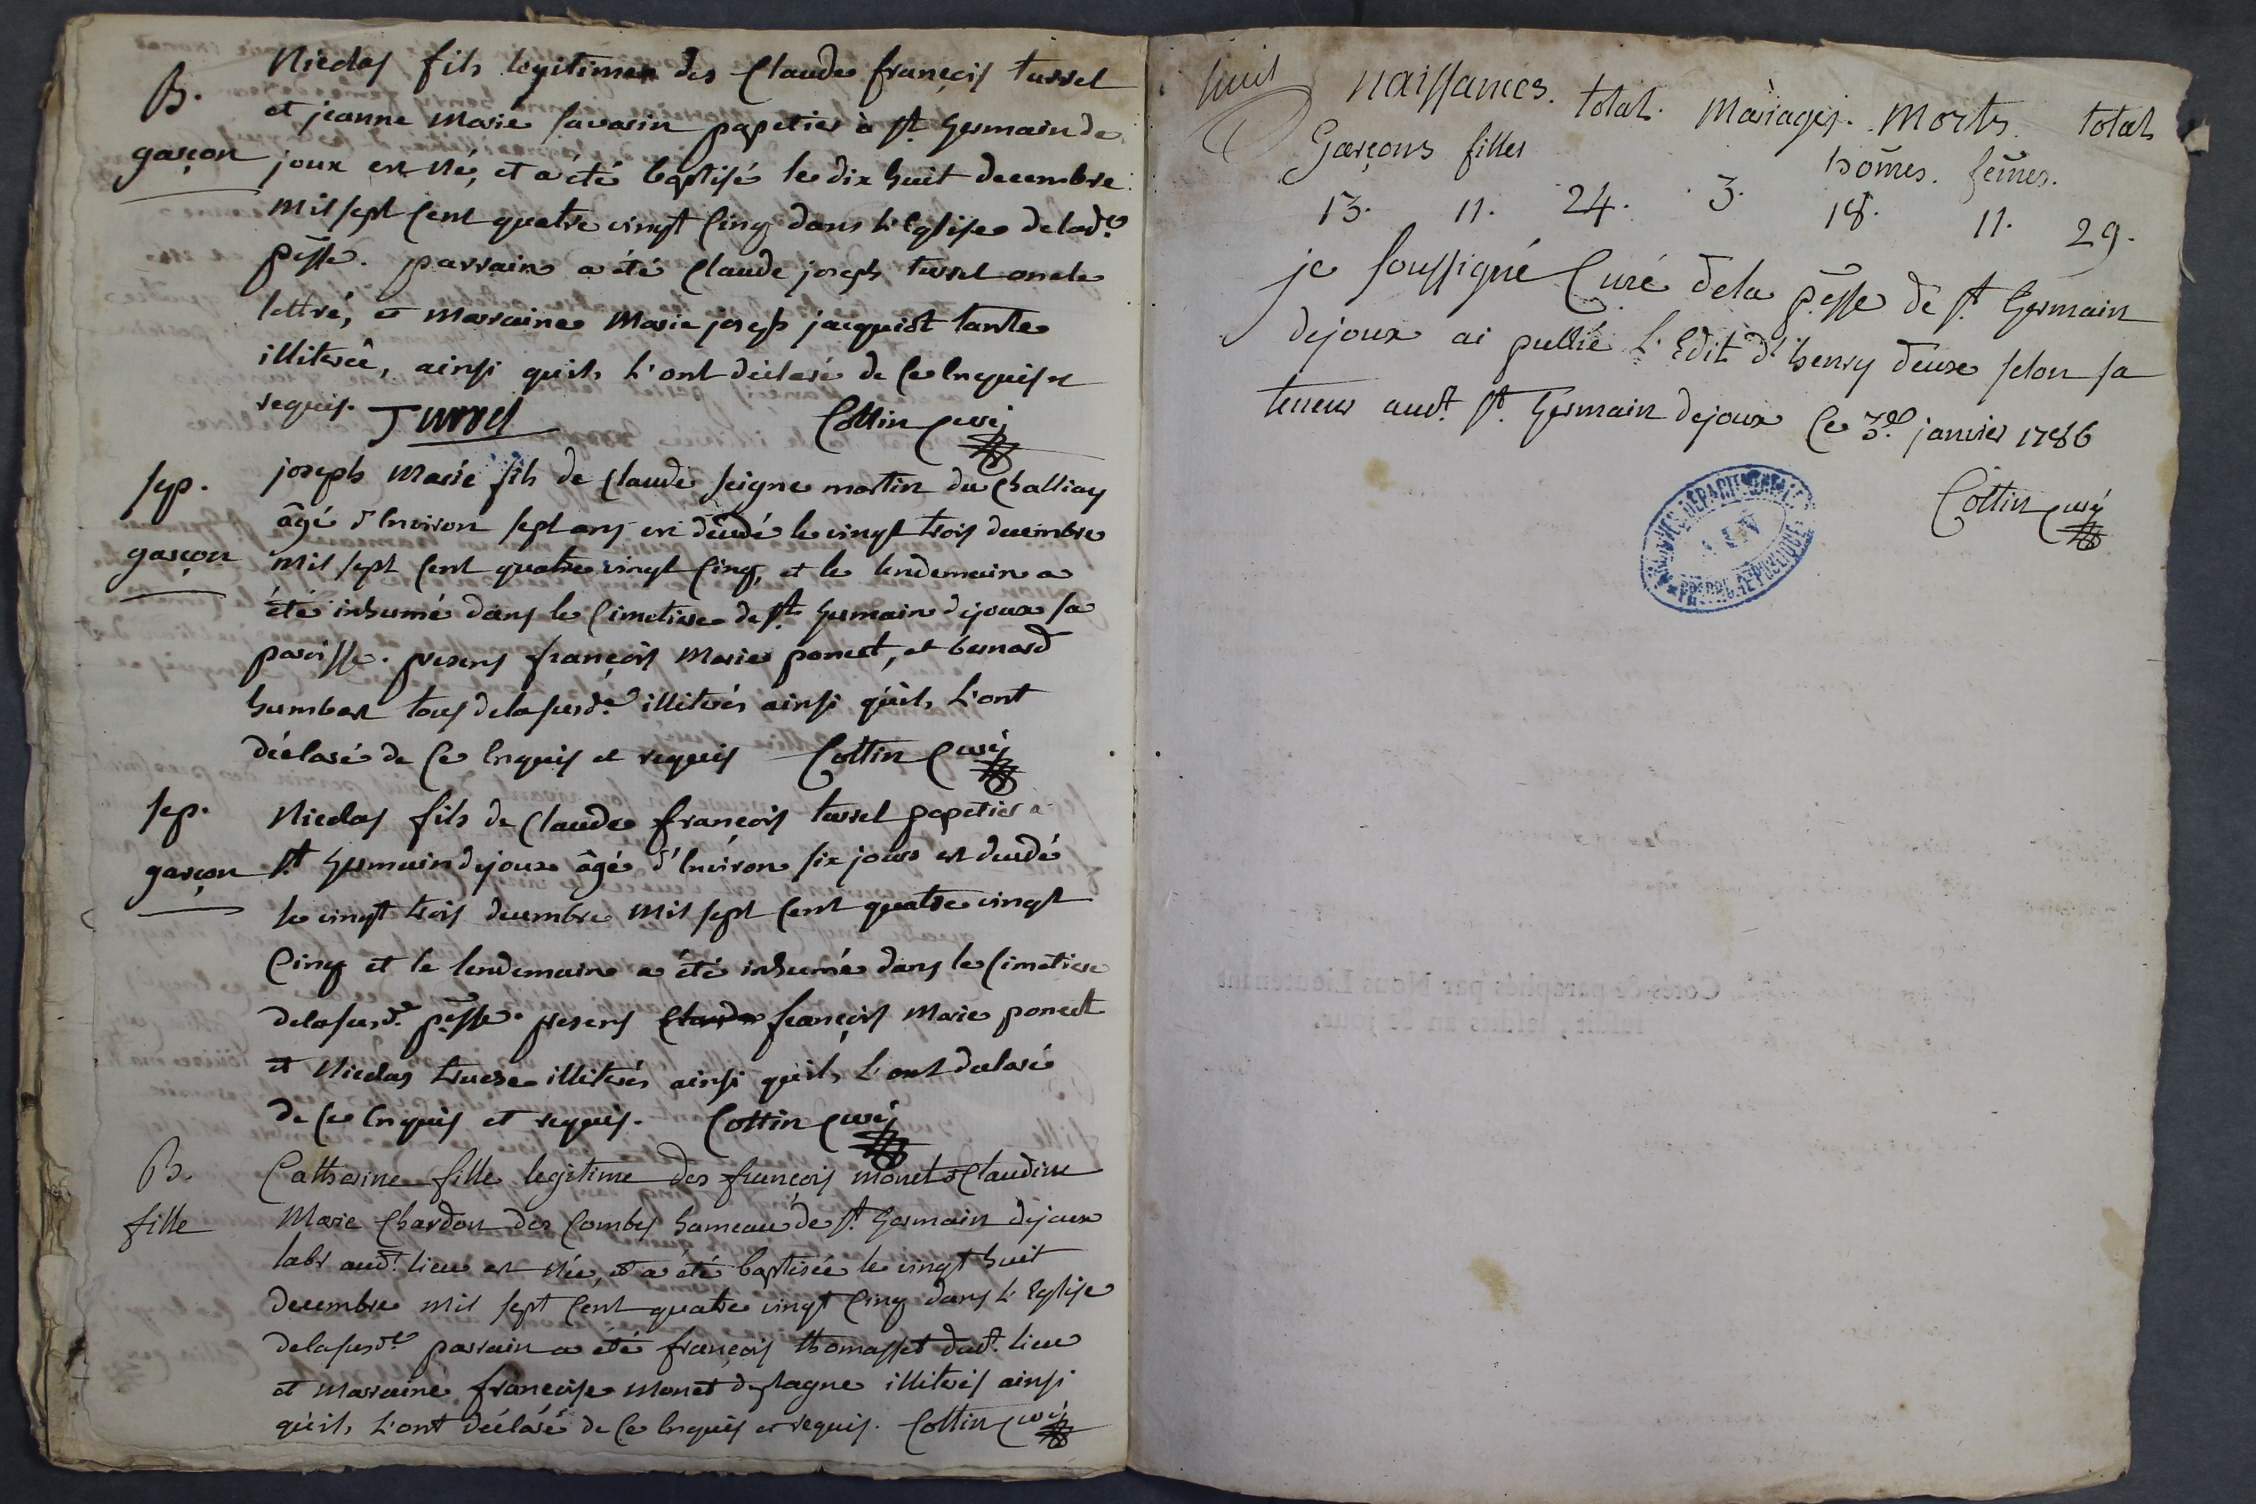 Nicolas fils legitime des Claude françois turrel
B.
et jeanne Marie savarin papetier à St. Germain de
garçon
joux est né, et a été baptisé le dix huit decembre
mil sept cent quatre vingt cinq dans l'Eglise de lade.
p̃sse. parrain a été Claude joseph turrel oncle
lettré, et marraine Marie joseph jacquiot tante
illiterée, ainsi quils l'ont déclaré de ce enquis et
requis. Turrel Cottin curé
sep.
garçon
joseph Marie fils de Claude seigne martin du Challiay
âgé d'environ sept ans est decedé le vingt trois decembre
mil sept cent quatre vingt cinq, et le lendemain a
été inhumé dans le cimetiere de St. Germain dejoux sa
paroisse. presens françois Marie poncet, et bernard
humbert tous de la susde. illiterés ainsi qu'ils l'ont
déclaré de ce enquis et requis Cottin curé
sep.
garçon
Nicolas fils de Claude françois turrel papetier a
St. Germain dejoux âgé d'environ six jours est decedé
le vingt trois decembre mil sept cent quatre vingt
cinq et le lendemain a été inhumé dans le cimetiere
de la susde. p̃sse. presens Claude françois Marie poncet
et Nicolas illiterés ainsi qu'ils l'ont declaré
de ce enquis et requis. Cottin curé
B.
fille
Catherine fille legitime des françois monet et Claudine
Marie Chardon des Combes hameau de St. Germain dejoux
labr audt. lieu est née, et a été baptisée le vingt huit
decembre mil sept cent quatre vingt cinq dans l'Eglise
de la susde. parrain a été françois thomasset dudt. lieu
et marraine françoise monet illiterés ainsi
qu'ils l'ont déclaré de ce enquis et requis. Cottin curé
huit
Naissances. total. Mariages. Morts. total
Garçons filles hom̃es. fem̃es.
13. 11. 24. 3. 18. 11. 29.
je soussigné Curé de la p̃sse de St. Germain
dejoux ai publié l'Edit d'henry deux selon sa
teneur audt. St. Germain dejoux ce 3e. janvier 1786
Cottin curé
ARCHIVES DEPARTEMENTALES
AIN
PROPR. REPUBLIQUE